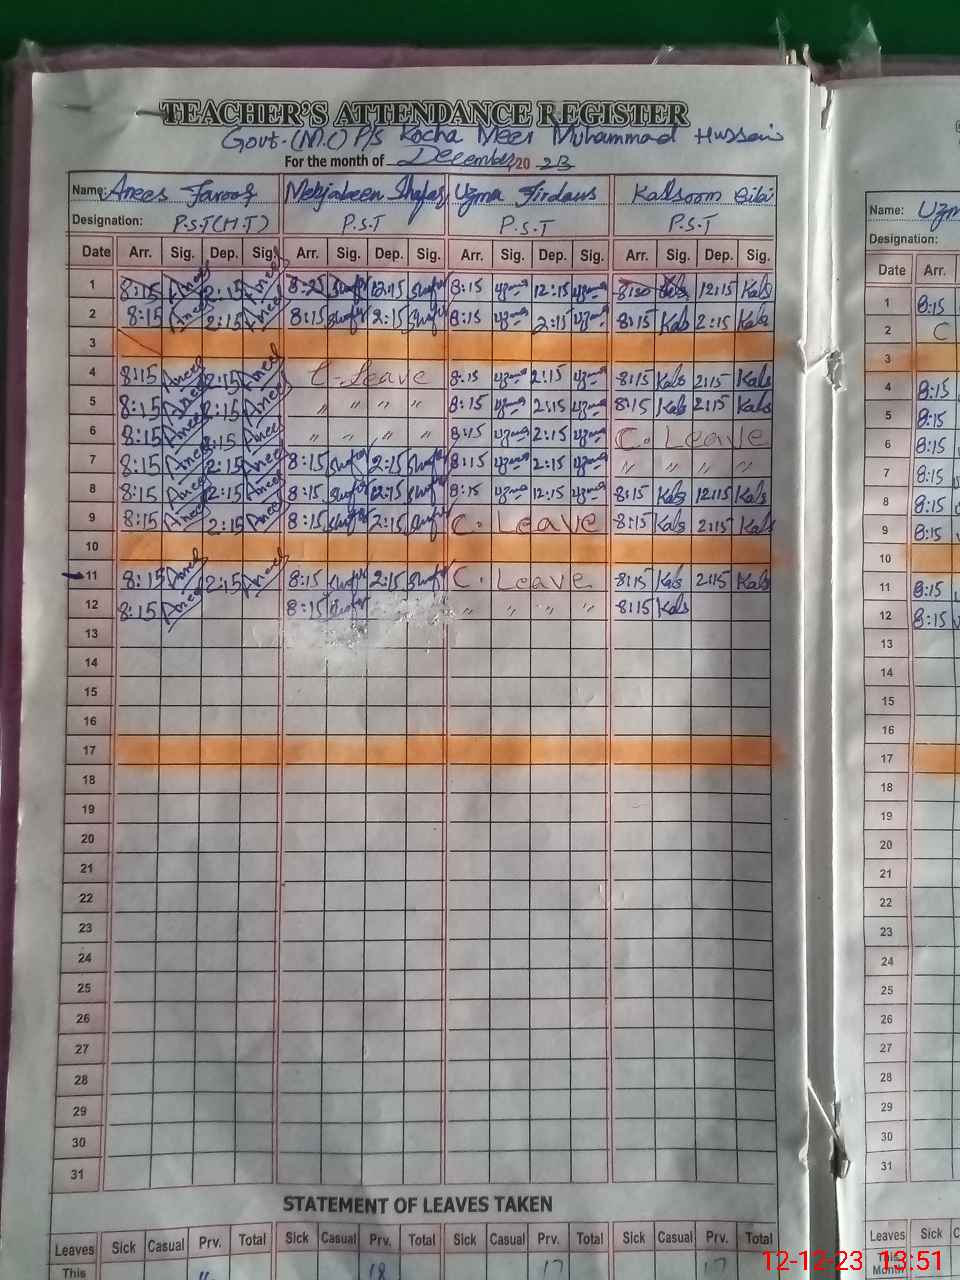 TEACHER'S ATTENDANCE REGISTER
Govt. (M.C) P/S Kocha Meer Muhammad Hussain
For the month of December, 20 23
Name: Anees Farooq Mehjabeen Uzma Firdaus Kalsoom Bibi
Designation: P.S.T (H.T) P.S.T P.S.T P.S.T
Date Arr. Sig. Dep. Sig. Arr. Sig. Dep. Sig. Arr. Sig. Dep. Sig. Arr. Sig. Dep. Sig.
1 8:15 Anees 12:15 Anees 8:25 12:15 8:15 uzma 12:15 uzma 12:15 Kals
2 8:15 Anees 2:15 Anees 8:15 2:15 8:15 uzma 2:15 uzma 8:15 Kals 2:15 Kals
3
4 8:15 Anees 2:15 Anees C. Leave 8:15 uzma 2:15 uzma 8:15 Kals 2:15 Kals
5 8:15 Anees 2:15 Anees " " " " 8:15 uzma 2:15 uzma 8:15 Kals 2:15 Kals
6 8:15 Anees 2:15 Anees " " " " 8:15 uzma 2:15 uzma C. Leave
7 8:15 Anees 2:15 Anees 8:15 2:15 8:15 uzma 2:15 uzma " " " "
8 8:15 Anees 12:15 Anees 8:15 12:15 8:15 uzma 12:15 uzma 8:15 Kals 12:15 Kals
9 8:15 Anees 2:15 Anees 8:15 2:15 C. Leave 8:15 Kals 2:15 Kals
10
11 8:15 Anees 2:15 Anees 8:15 2:15 C. Leave 8:15 Kals 2:15 Kals
12 8:15 Anees 8:15 " " " " 8:15 Kals
13
14
15
16
17
18
19
20
21
22
23
24
25
26
27
28
29
30
31
STATEMENT OF LEAVES TAKEN
Leaves Sick Casual Prv. Total Sick Casual Prv. Total Sick Casual Prv. Total Sick Casual Prv. Total
This 18 17 17
Name: Uzm
Designation:
Date Arr.
1 8:15
2 C
3
4 8:15
5 8:15
6 8:15
7 8:15
8 8:15
9 8:15
10
11 8:15
12 8:15
13
14
15
16
17
18
19
20
21
22
23
24
25
26
27
28
29
30
31
Leaves Sick C
This
Month
12-12-23 13:51